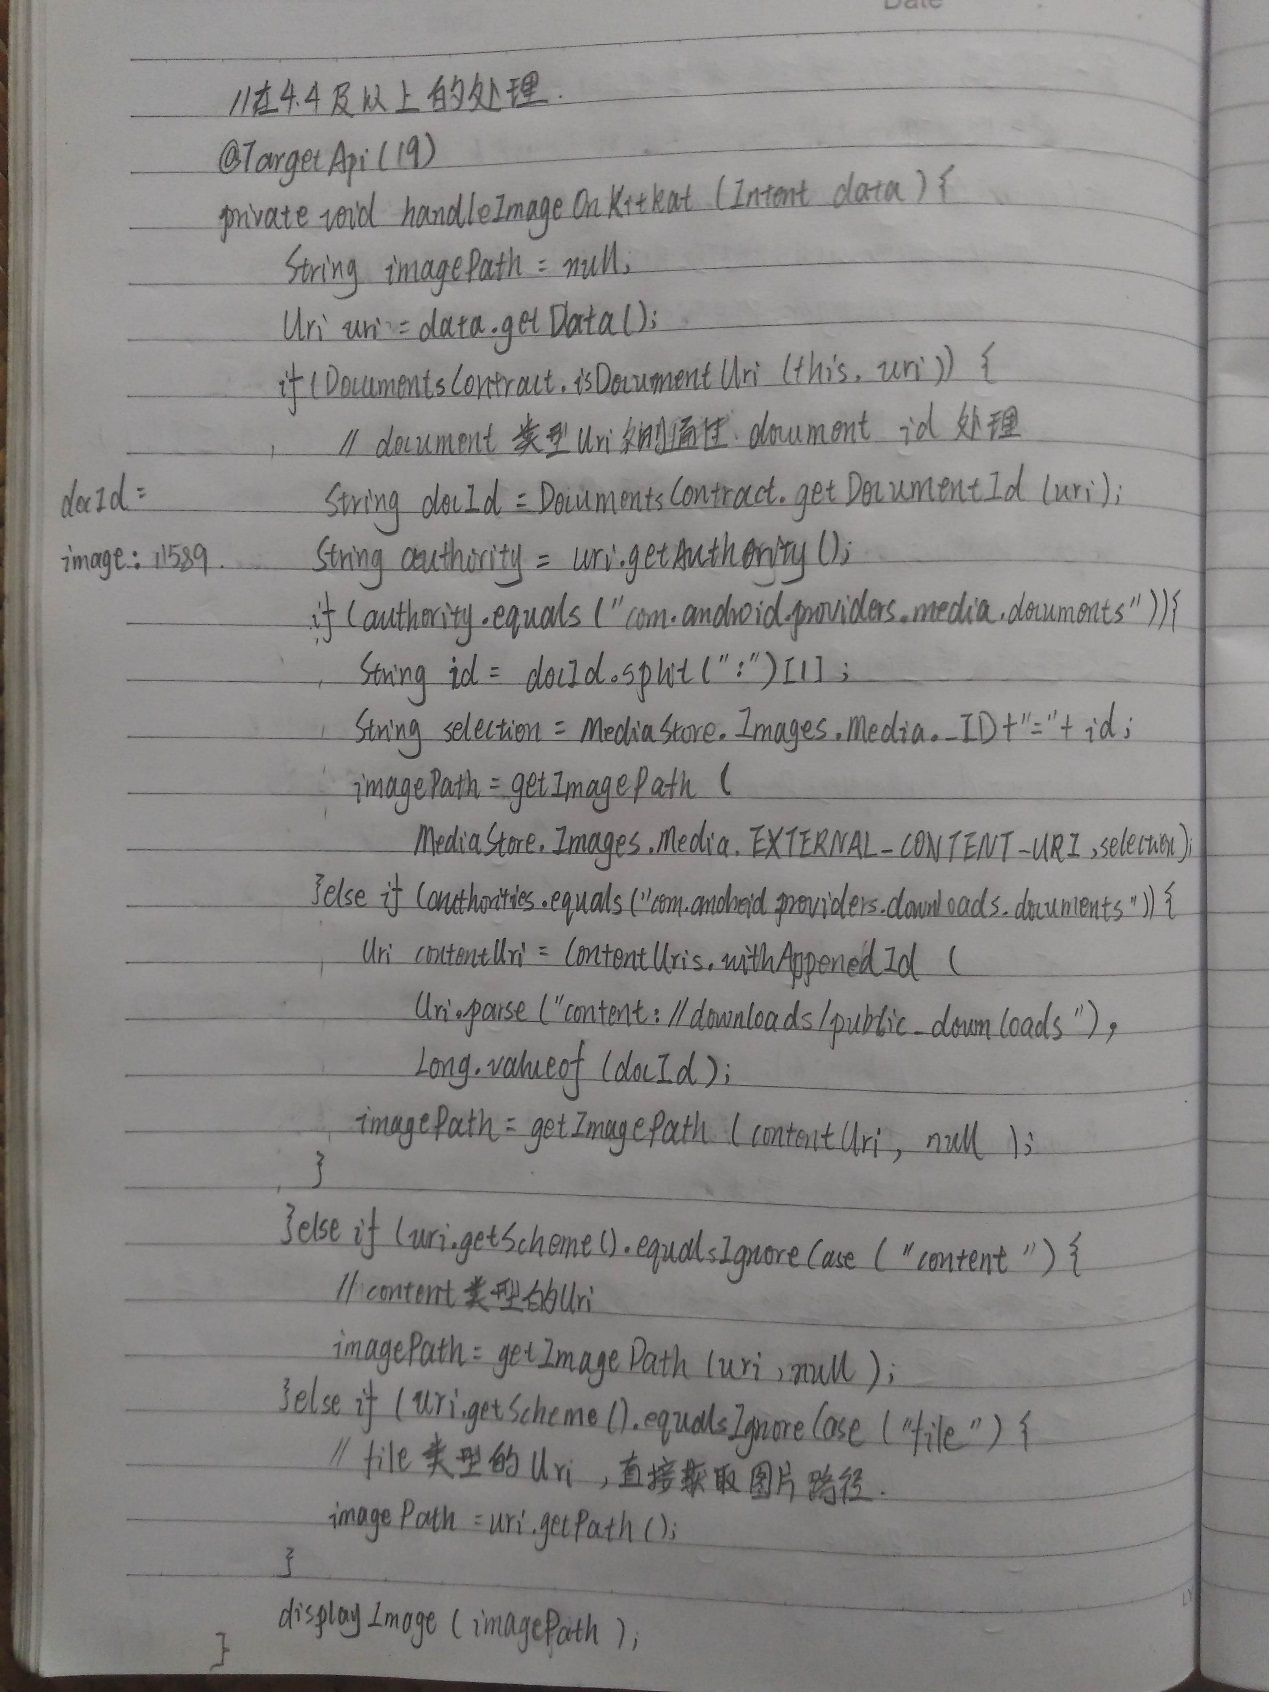 Date
//在4.4及以上的处理.
@TargetApi(19)
private void handleImageOnKitkat (Intent data){
String imagePath = null;
Uri uri = data.getData();
if(DocumentsContract.isDocumentUri (this, uri)) {
// document 类型Uri 通 document id 处理
docId =
String docId = DocumentsContract.getDocumentId (uri);
image: 11589.
String authority = uri.getAuthority();
if (authority.equals ("com.android.providers.media.documents")){
String id = docId.split(":")[1];
String selection = MediaStore.Images.Media._ID+"="+ id;
imagePath = getImagePath (
MediaStore.Images.Media.EXTERNAL_CONTENT_URI,selection);
}else if (authorities.equals("com.android.providers.downloads.documents")){
Uri contentUri = ContentUris.withAppenedId (
Uri.parse ("content://downloads/public_downloads"),
Long.valueof (docId);
imagePath = getImagePath (contentUri, null );
}
}else if (uri.getScheme().equalsIgnoreCase ("content") {
//content类型的Uri
imagePath = getImagePath (uri,null );
}else if (uri.getScheme().equalsIgnoreCase ("file") {
// file 类型的Uri,直接获取图片路径.
imagePath = uri.getPath();
}
displayImage (imagePath);
}